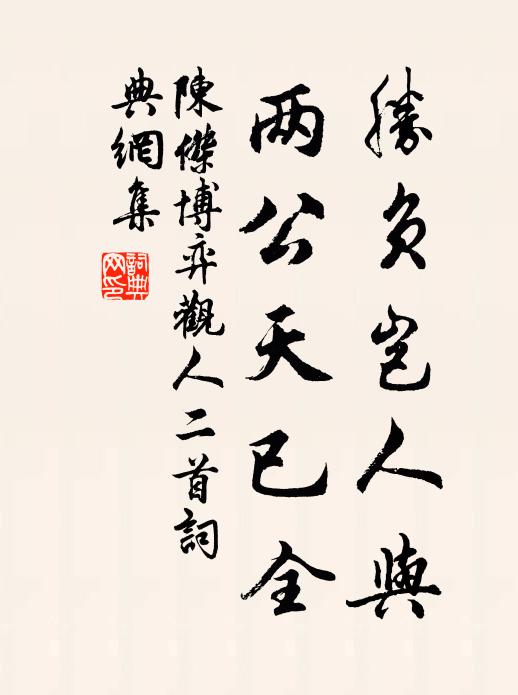 勝負豈人與
两公天已全
陳傑博弈觀人二首詞
典網集
詞典网印